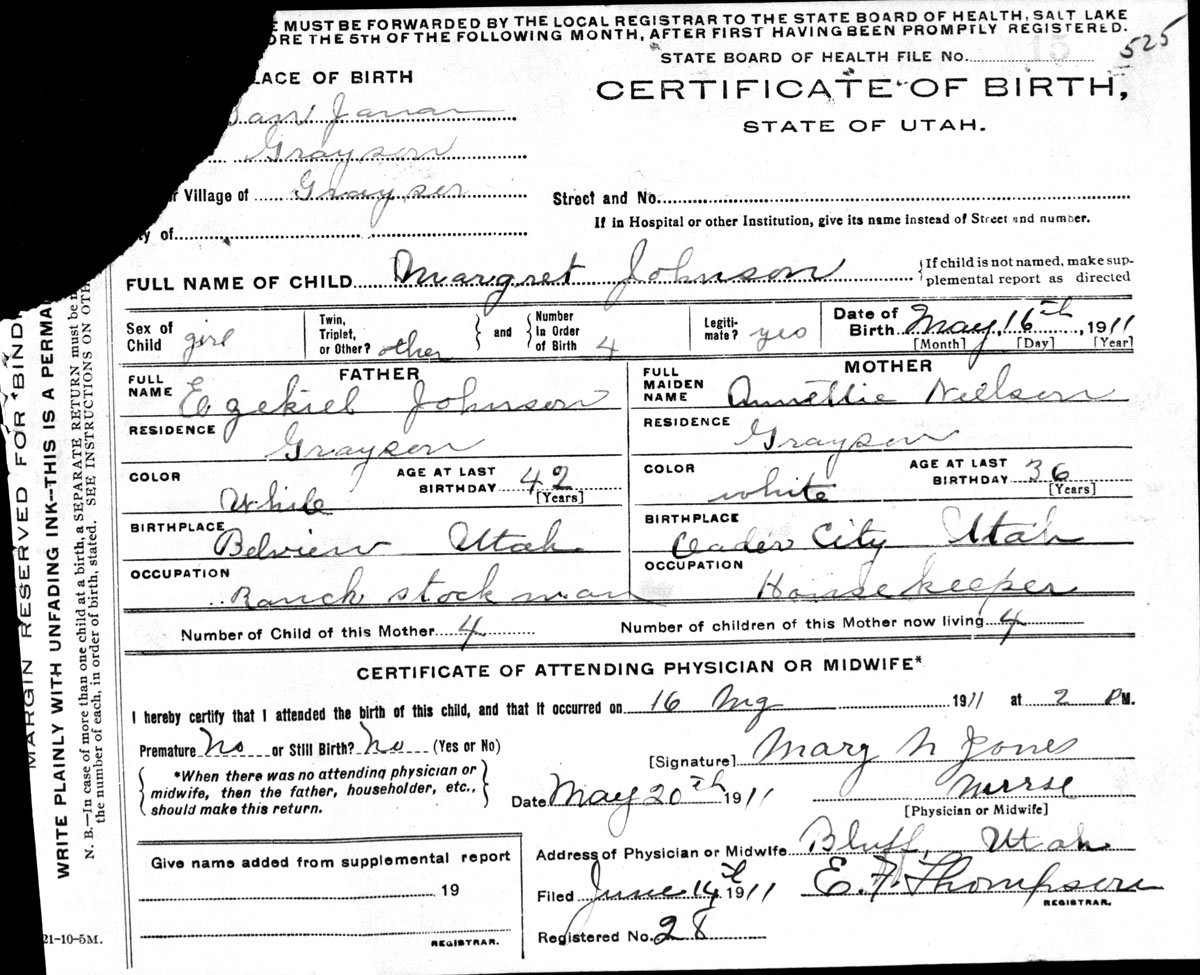 E MUST BE FORWARDED BY THE LOCAL REGISTRAR TO THE STATE BOARD OF HEALTH, SALT LAKE
ORE THE 5TH OF THE FOLLOWING MONTH, AFTER FIRST HAVING BEEN PROMPTLY REGISTERED.
525
STATE BOARD OF HEALTH FILE No. 15
LACE OF BIRTH
CERTIFICATE OF BIRTH,
STATE OF UTAH.
Grayson
r Village of Grayson
Street and No.
If in Hospital or other Institution, give its name instead of Street and number.
ty of
FULL NAME OF CHILD Margret Johnson
{If child is not named, make sup-
plemental report as directed
Sex of Child girl
Twin, Triplet, or Other? other
and
Number In Order of Birth 4
Legiti- mate? yes
Date of Birth May 16th, 1911
[Month] [Day] [Year]
FATHER
MOTHER
FULL NAME Ezekiel Johnson
FULL MAIDEN NAME Annettie Nielson
RESIDENCE Grayson
RESIDENCE Grayson
COLOR White
AGE AT LAST BIRTHDAY 42
[Years]
COLOR white
AGE AT LAST BIRTHDAY 36
[Years]
BIRTHPLACE Belview Utah
BIRTHPLACE Ceader City Utah
OCCUPATION Ranch stock man
OCCUPATION House keeper
Number of Child of this Mother 4
Number of children of this Mother now living 4
CERTIFICATE OF ATTENDING PHYSICIAN OR MIDWIFE*
I hereby certify that I attended the birth of this child, and that it occurred on 16 1911 at 2 PM.
Premature No or Still Birth? No (Yes or No)
[Signature] Mary N Jones
{*When there was no attending physician or
midwife, then the father, householder, etc.,
should make this return.}
Date May 20th 1911
Nurse
[Physician or Midwife]
Give name added from supplemental report
19
REGISTRAR.
Address of Physician or Midwife Bluff, Utah
Filed June 14th 1911
E. F. Thompson
REGISTRAR.
Registered No. 28
21-10-5M.
MARGIN RESERVED FOR BIND
WRITE PLAINLY WITH UNFADING INK--THIS IS A PERMA
N. B.--In case of more than one child at a birth, a SEPARATE RETURN must be
the number of each, in order of birth, stated. SEE INSTRUCTIONS ON OTH